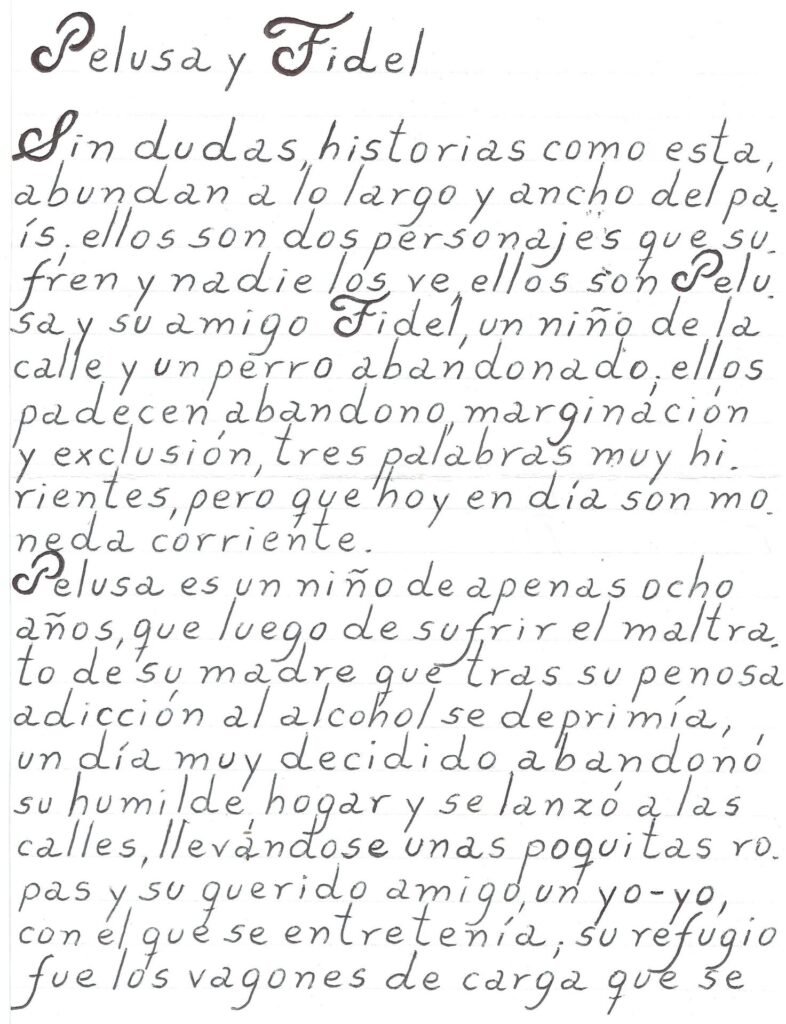 Pelusa y Fidel
Sin dudas, historias como esta,
abundan a lo largo y ancho del pa.
ís; ellos son dos personajes que su.
fren y nadie los ve, ellos son Pelu.
sa y su amigo Fidel, un niño de la
calle y un perro abandonado; ellos
padecen abandono, marginación
y exclusión, tres palabras muy hi.
rientes, pero que hoy en día son mo.
neda corriente.
Pelusa es un niño de apenas ocho
años, que luego de sufrir el maltra.
to de su madre que tras su penosa
adicción al alcohol se deprimía,
un día muy decidido abandonó
su humilde hogar y se lanzó a las
calles, llevándose unas poquitas ro.
pas y su querido amigo, un yo-yo,
con el que se entretenía; su refugio
fue los vagones de carga que se